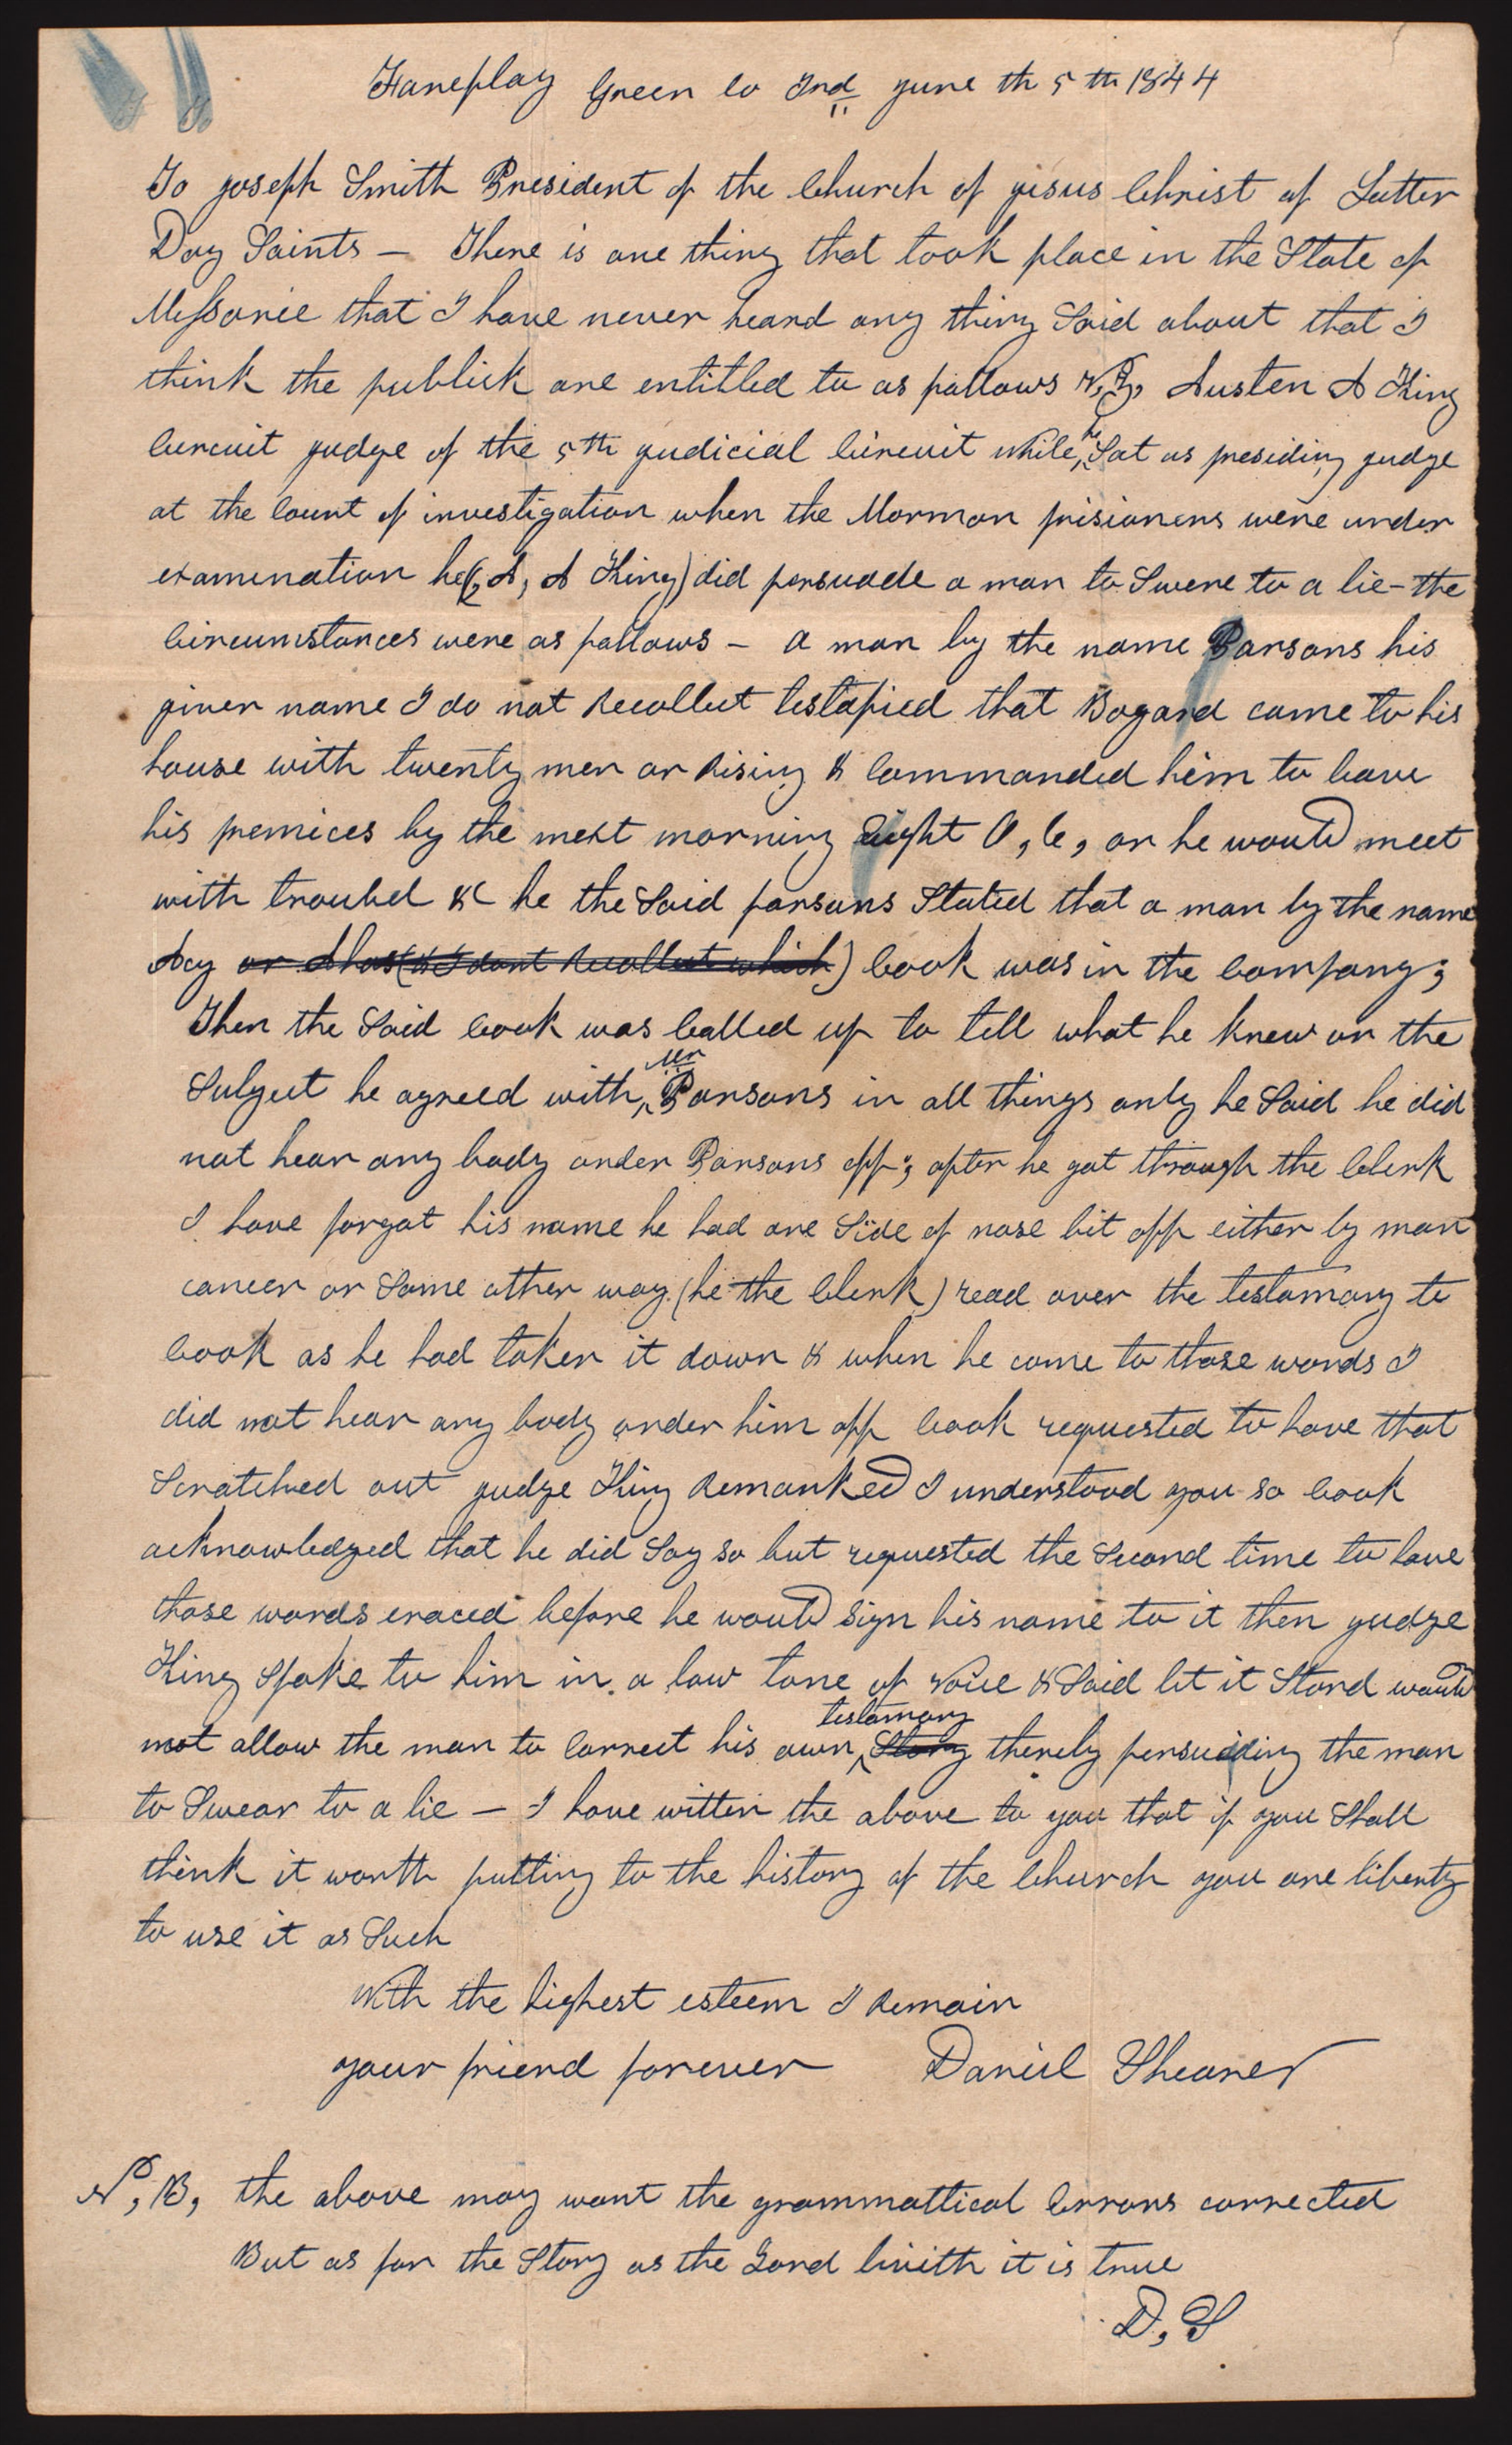 Faneplay Green Co Ind June th 5 th 1844
To Joseph Smith President of the Church of jesus Christ of Latter
Day Saints – There is one thing that took place in the State of
Messorie that I have never heard any thing Said about that I
think the publick are entitled to as follows v,z, Austen A King
Curcuit judge of the 5th judicial Circuit while he Sat as presiding judge
at the Court of investigation when the Mormon prisioners were under
examenation he(, A, A King) did persuade a man to Swere to a lie – the
Circumstances were as follows – a man by the name Parsons his
given name I do not Recollect testafied that Bogard came to his
house with twenty men or Rising & Commanded him to leave
his premices by the next morning Eight O, C, or he would meet
with troubel & he the Said parsons Stated that a man by the name
Acy or Ahas (& I dont Recollect which) Cook was in the Company;
Then the Said Cook was Called up to tell what he knew on the
Subject he agreed with Mr Parsons in all things only he Said he did
not hear any body order Parsons off; after he got through the Clerk
I have forgot his name he had one Side of nose bit off either by man
cancer or Some other way (he the Clerk) read over the testamony to
Cook as he had taken it down & when he come to those words I
did not hear any body order him off Cook requested to have that
Scratched out judge King Remarked I understood you so Cook
acknowledged that he did Say so but requested the Second time to have
those words eraced before he would sign his name to it then judge
King Spoke to him in a low tone of voice & Said let it Stand would
not allow the man to Correct his own Story testamony thereby persuading the man
to Swear to a lie – I have witten the above to you that if you Shall
think it worth putting to the history of the Church you are liberty
to use it as Such
With the highest esteem I Remain
your friend forever Daniel Shearer
N, B, the above may want the grammattical Errors corrected
But as for the Story as the Lord liveth it is true
D, S